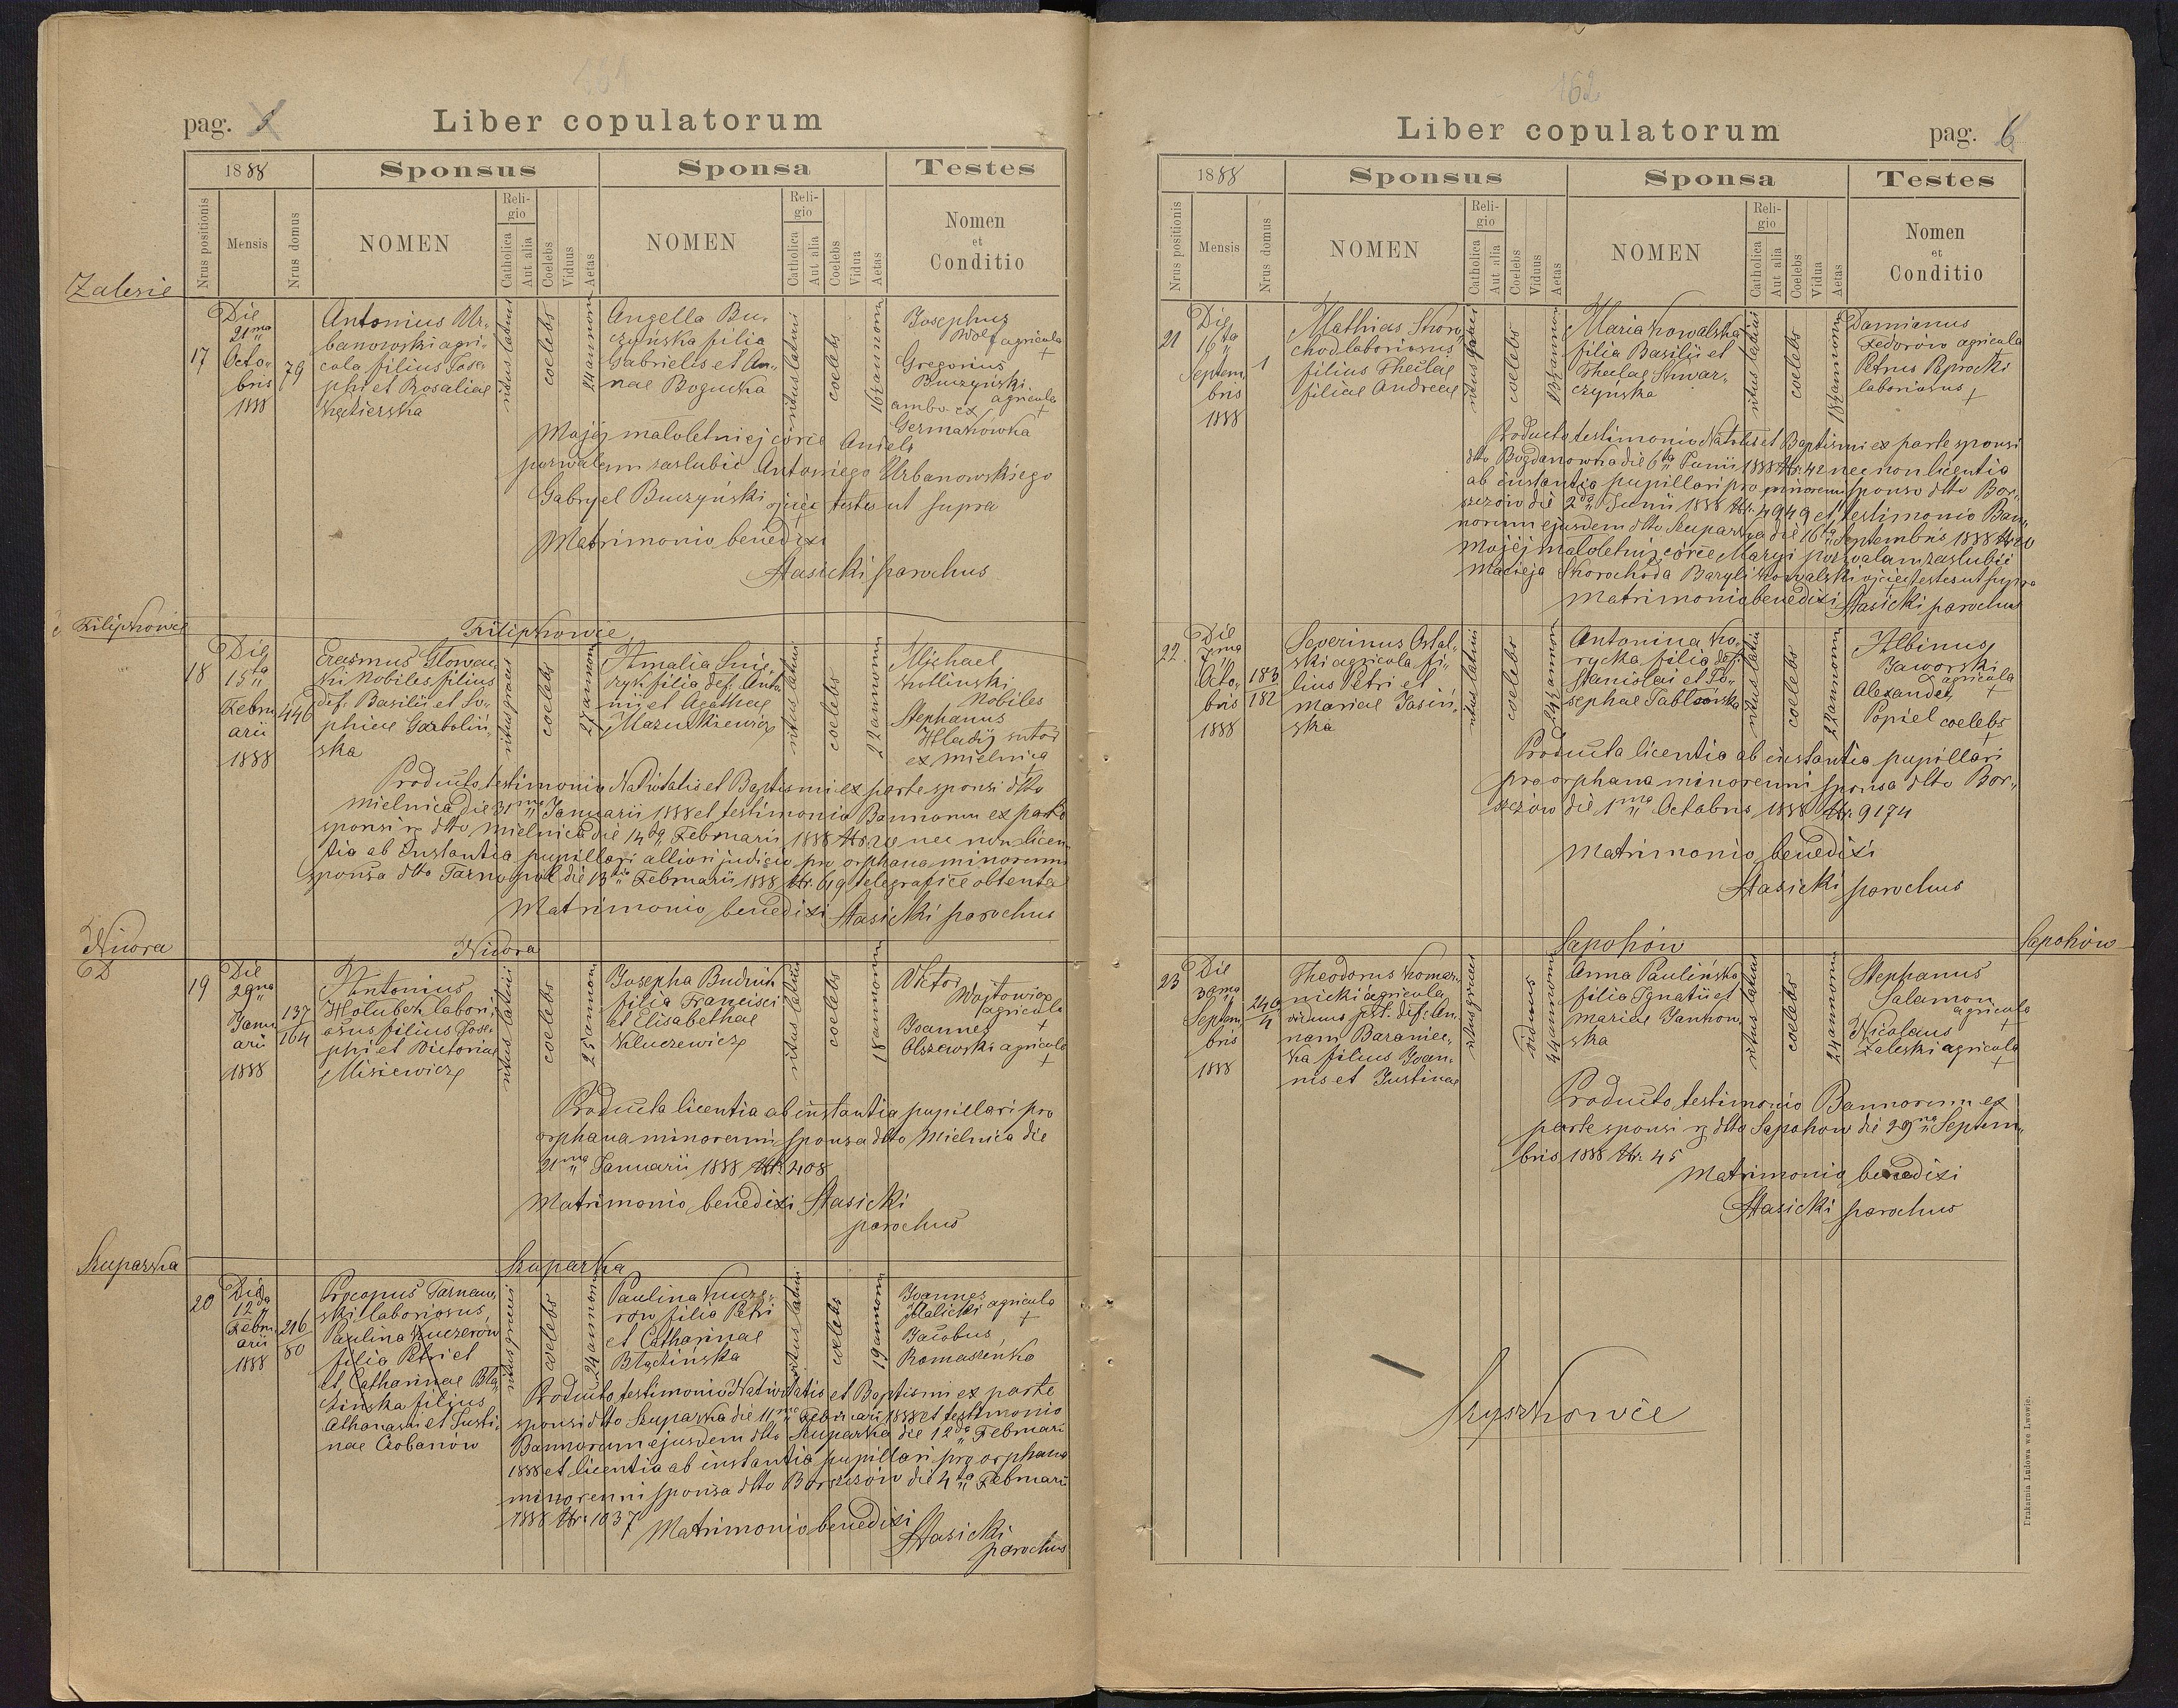 pag. 5
Liber copulatorum
1888
Sponsus
Sponsa
Testes
Nrus positionis
Mensis
Nrus domus
NOMEN
Religio
Catholica
Aut alia
Coelebs
Viduus
Aetas
NOMEN
Religio
Catholica
Aut alia
Coelebs
Vidua
Aetas
Nomen
et
Conditio
Zalesie
17
Die
21ma
Octo„
bris
1888
79
Antonius Ur„
banowski agri„
cola filius Jose„
phi et Rosaliae
ritus latini
coelebs
24 annorum
Angella Bu„
czyńska filia
Gabrielis et An„
nae Bogucka
ritus latini
coelebs
16 annorum
Josephus
Wolf agricola
+
Gregorius
Buczyński
agricola
ambo ex +
Germakowka
Mojéj małoletniej córce Anieli
pozwalam zaslubić Antoniego Urbanowskiego
Gabryel Buczyński ojciec testes ut supra
Matrimonio benedixi
Stasicki parochus
Filipkowce
Filipkowce
18
Die
15ta
Febru„
arii
1888
446
Erasmus Głowac„
ki Nobiles filius
def. Basilii et So„
phiae Garboliń„
ska
ritus graeci
coelebs
27 annorum
Amalia
filia def. Anto„
nii et Agathae
Mazurkiewicz
ritus latini
coelebs
22 annorum
Michael
Kotlinski
Nobiles
Stephanus
Hladij sutor
ex Mielnica
+
Producto testimonio Nativitatis et Baptismi ex parte sponsi dtto
Mielnica die 31ma Januarii 1888 et testimonio Bannorum ex parte
sponsi dtto Mielnica die 14ta Februarii 1888 nec non licen„
tia ab Instantia pupillari altiori judicio pro orphana minorenni
sponsa dtto Tarnopol die 13tia Februarii 1888 Nr. 619 telegrafice obtenta
Matrimonio benedixi Stasicki parochus
Niwra
Niwra
19
Die
29na
Janu
arii
1888
137
164
Antonius
Hołubek labori„
osus filius Jose„
phi et Victoriae
Misiewicz
ritus latini
coelebs
25 annorum
Josepha Budnik
filia Francisci
et Elisabethae
Kluczewicz
ritus latini
coelebs
18 annorum
Victor
Wojtowicz
agricola
+
Joannes
Olszewski agricola
+
Producta licentia ab instantia pupillari pro
orphana minorenni sponsa dtto Mielnica die
21ma Januarii 1888 Nr. 408
Matrimonio benedixi Stasicki
parochus
Szuparka
Szuparka
20
Die
12da
Febru„
arii
1888
216
80
Procopius Tarnaw„
ski laboriosus
Paulina Kuczerów
filia Petri et
et Catharinae Bła„
tińska filius
Athanasii et Justi„
nae Czobanów
ritus graeci
coelebs
24 annorum
Paulina Kucze„
rów filia Petri
et Catharinae
Błatińska
ritus latini
coelebs
19 annorum
Joannes
Halicki agricola
+
Jacobus
Romaszeńko
Producto testimonio Nativitatis et Baptismi ex parte
sponsi dtto Szuparka die 11ma Februarii 1888 et testimonio
Bannorum ejusdem dtto Szuparka die 12da Februarii
1888 et licentia ab instantia pupillari pro orphana
minorenni sponsa dtto Borszczów die 4ta Februarii
1888 Nr. 1037 Matrimonio benedixi
Stasicki
parochus
162
Liber copulatorum
pag. 6
1888
Sponsus
Sponsa
Testes
Nrus positionis
Mensis
Nrus domus
NOMEN
Religio
Catholica
Aut alia
Coelebs
Viduus
Aetas
NOMEN
Religio
Catholica
Aut alia
Coelebs
Vidua
Aetas
Nomen
et
Conditio
21
Die
16ta
Septem„
bris
1888
1
Mathias Skoro„
chod laboriosus
filius Theclae
filiae Andreae
ritus graeci
coelebs
23 annorum
Maria Kowalska
filia Basilii et
Theclae Skwar„
czyńska
ritus latini
coelebs
18 annorum
Damianus
Fedorów agricola
Petrus Paprocki
laboriosus +
Producto testimonio Natales et Baptismi ex parte sponsi
dtto Bogdanowka die 6ta Junii 1888 Nr. 42 nec non licentia
ab instantia pupillari pro minorenni sponso dtto Bor„
szczów die 2da Junii 1888 Nr. 4949 et testimonio Ban„
norum ejusdem dtto Szuparka die 16ta Septembris 1888
Mojéj małoletniej córce Maryi pozwalam zaslubić
Macieja Skorochoda Bazyli Kowalski ojciec testes ut supra
Matrimonio benedixi Stasicki parochus
22.
Die
7ma
Octo„
bris
1888
183
182
Severinus Ostal„
ski agricola fi„
lius Petri et
Mariae Jasiń„
ska
ritus latini
coelebs
24 annorum
Antonina Ko„
rycka filia def.
Stanislai et Jo„
sephae Jabłońska
ritus latini
coelebs
22 annorum
Albinus
Jaworski
agricola
+
Alexander
Popiel coelebs
+
Producta licentia ab instantia pupillari
pro orphana minorenni sponsa dtto Bor„
szczów die 1ma Octobris 1888 Nr. 9174
Matrimonio benedixi
Stasicki parochus
Sapohów
Sapohów
23
Die
30ma
Septem„
bris
1888
246
4
Theodorus Komar„
nicki agricola
viduus post. def. An„
nam Baraniec„
ka filius Joan„
nis et Justinae
ritus graeci
viduus
44 annorum
Anna Paulińska
filia Ignatii et
Mariae Jankow„
ska
ritus latini
coelebs
24 annorum
Stephanus
Salamon
agricola
+
Nicolaus
Zaleski agricola
+
Producto testimonio Bannorum ex
parte sponsi dtto Sapohow die 29na Septem„
bris 1888 Nr. 45
Matrimonio benedixi
Stasicki parochus
Szyszkowce
Drukarnia Ludowa we Lwowie.